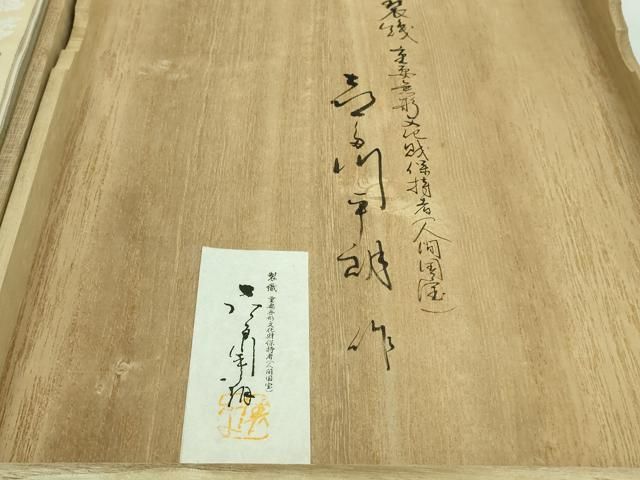 製織 重要無形文化財保持者(人間国宝)
喜多川平朗 作
製織 重要無形文化財保持者(人間国宝)
喜多川平朗